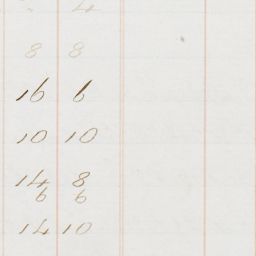 4
8 8
16 6
10 10
14 8
6 6
14 10